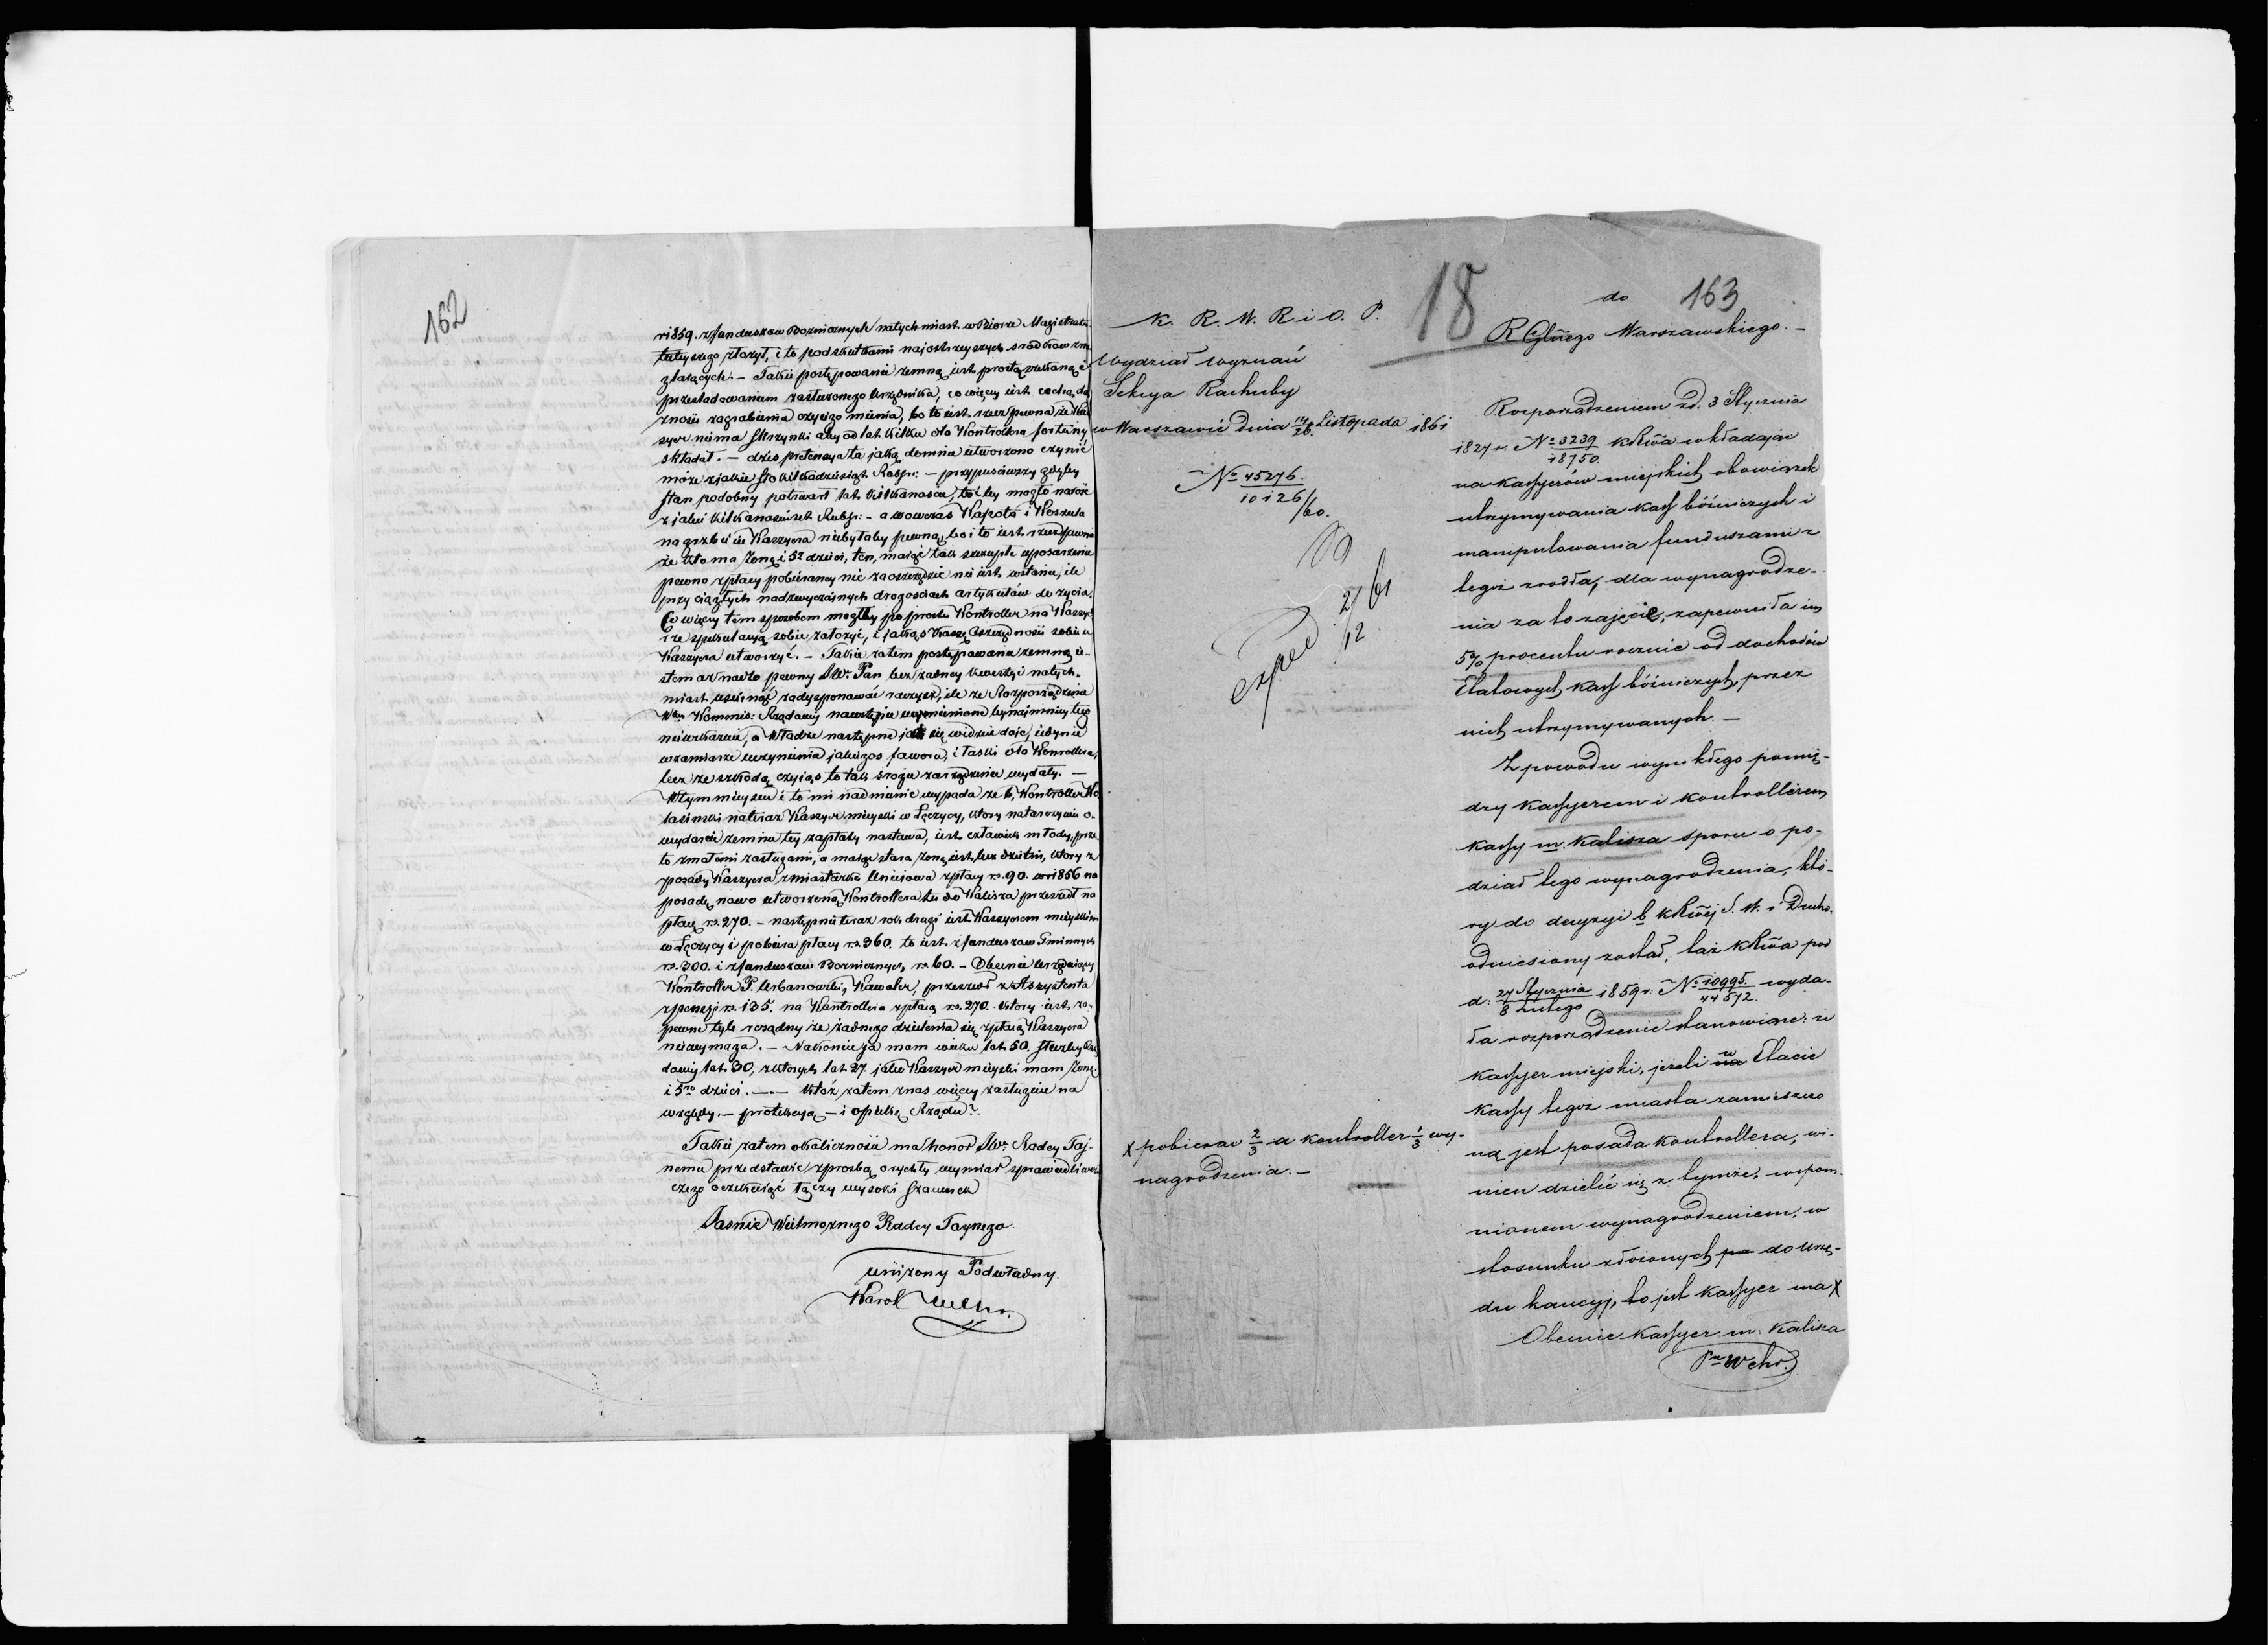 162
r 1859. z funduszów Boznicznych natychmiast w Biorze Magistratu
tutejszego złożył, i to pod skutkami najostrzejszych srodków zna
glających. – Takie postępowanie zemną jest prostą szykaną i
przesladowaniem zasłużonego Urzędnika, co więcej jest cechą dą
żności zagrabienia czyjego mienia, bo to jest rzecz pewna że Kas
syer niema skrzynki aby od lat kilku dla Kontrollera fortunę
składał. – dziś pretensya ta jaką do mnie utworzono czynić
może z jakie sto kilkadziesiąt Rubsr: – przypuściwszy gdyby
stan podobny potrwał lat kilkanascie, to by mogło narość
z jakie kilkanascieset Rubsr: – a wowczas Kapota i Koszula
na grzbiecie Kassyera niebyłaby pewną, bo i to jest rzecz pewna
że kto ma Zonę i 5ro dzieci, ten, maiąć tak szczupłe uposażenie
pewno z płacy pobieraney nic zaoszczędzić nie jest wstanie, ile
przy ciągłych nadzwyczajnych drogosciach artykułów do zycia.
Co więcej tem sposobem mogłby po prostu Kontroller na Kassye
rze spekulacyą sobie założyć, i jakąś Kassę Oszczędności sobie u
Kassyera utworzyć. – Takie zatem postępowanie zemną je-
stem aż nadto pewny JW. Pan bez żadney kwestyi natych-
miast usunąć zadysponować raczysz, ile że Rozporządzenia
Kommis: Rządowej na wstępie wymienione bynajmniej tego
nie wskazuią, a Władze następne jak się widzieć daje, jedynie
w zamiarze uczynienia jakiegoś faworu, i łaski dla Kontrollera,
lecz ze szkodą czyiąś to tak srogie zarządzenie wydały. –
W tym miejscu i to mi nadmienić wypada że b. Kontroller Ko
lasinski na teraz Kassyer miejski w Łęczycy, ktory
wydarcie zemnie tej zapłaty nastawa, jest człowiek młody, prze
to z małemi zasługami, a maiąc starą Zonę jest bez dzieci, ktory z
posady Kassyera z miasteczka Uniejowa z płacy rs. 90. w r 1856 na
posadę nowo utworzoną Kontrollera tu do Kalisza przeszedł na
płacę rs. 270. – następnie teraz rok drugi jest Kassyerem miejskim
w Łęczycy i pobiera płacy rs. 360. to jest z funduszów Gminnych
rs. 300. i z funduszów Boznicznych, rs. 60. – Obecnie urzęduiący
Kontroller P. Urbanowski, Kawaler, przeszedł z Assystenta
z pensyi rs. 135. na Kontrollera z płacą rs. 270. ktory jest, za-
pewne tyle rosądny że żadnego dzielenia się z płacą Kassyera
nie wymaga. – Nakoniec ja mam wieku lat 50, służby Rzą
dowej lat 30, z ktorych lat 27 jako Kassyer miejski mam Zonę
i 5ro dzieci. – – Któż zatem z nas więcej zasługuie na
względy. – protekcyą – i opiekę Rządu?.
Takie zatem okoliczności ma honor JW. Radcy Taj-
nemu przedstawić z prosbą o rychły wymiar sprawiedliwości
czego oczekuiąć łączy wysoki szacunek
Jaśnie Wielmożnego Radcy Taynego.
uniżony Podwładny.
Karol Wehr.
18
163
K. R. W. R i O. P.
Wydział Wyznań
Sekcya Rachuby
w Warszawie dnia 14/26 Listopada 1861
No 45276.
10126/60.
exped 2/12 61
do
R Glnego Warszawskiego. –
Rozporządzeniem z d. 3 Stycznia
1827 r. No 3239/18750 KRwa wkładając
na kassyerów miejskich obowiązek
utrzymywania kass bóżniczych i
manipulowania funduszami z
tegoż zrodła, dla wynagrodze-
nia za to zajęcie, zapewniła im
5% procentu rocznie od dochodów
Etatowych kass bóżniczych, przez
nich utrzymywanych. –
Z powodu wynikłego pomię-
dzy kassyerem i kontrollerem
kassy m. Kalisza sporu o po-
dział tego wynagrodzenia, któ-
ry do decyzyi b KRwej S. W. i Ducho.
odniesiony został, taż KRwa pod
d: 27 Stycznia/8 Lutego 1859 r. No 10995/44572 wyda-
ła rozporządzenie stanowiące: że
kassyer miejski, jeżeli na w Etacie
kassy tegoż miasta zamieszczo
ną jest posada kontrollera, wi-
nien dzielić się z tymże, wspom-
nionem wynagrodzeniem, w
stosunku złożonych pa do Urzę-
du kaucyj, to jest kassyer ma X
X pobierać 2/3 a kontroller 1/3 wy-
nagrodzenia. –
Obecnie kassyer m. Kalisza
Pn Wehr.